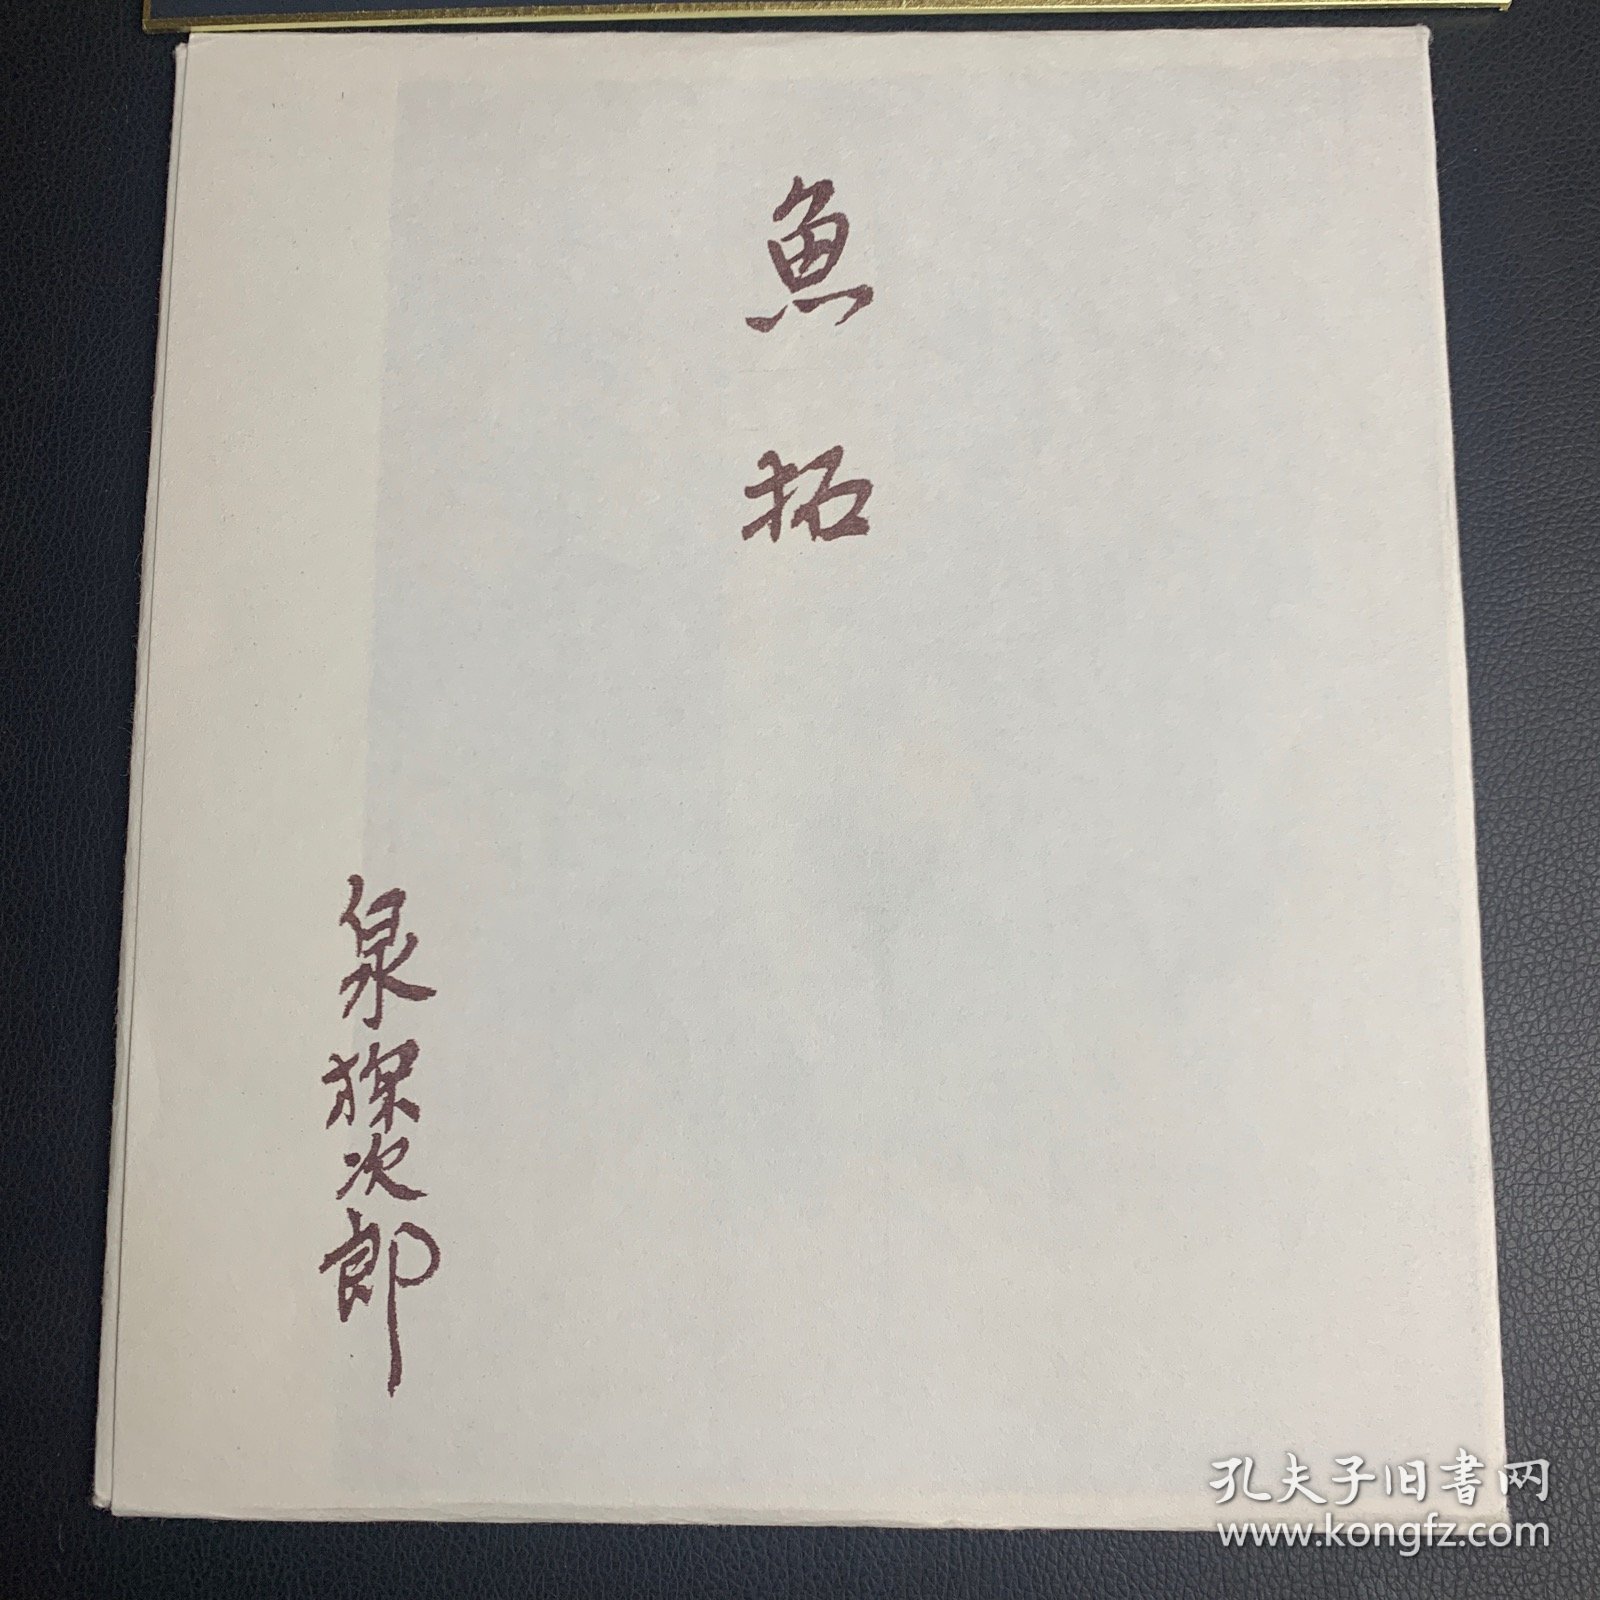 魚拓
泉探次郎
孔夫子旧書网
www.kongfz.com